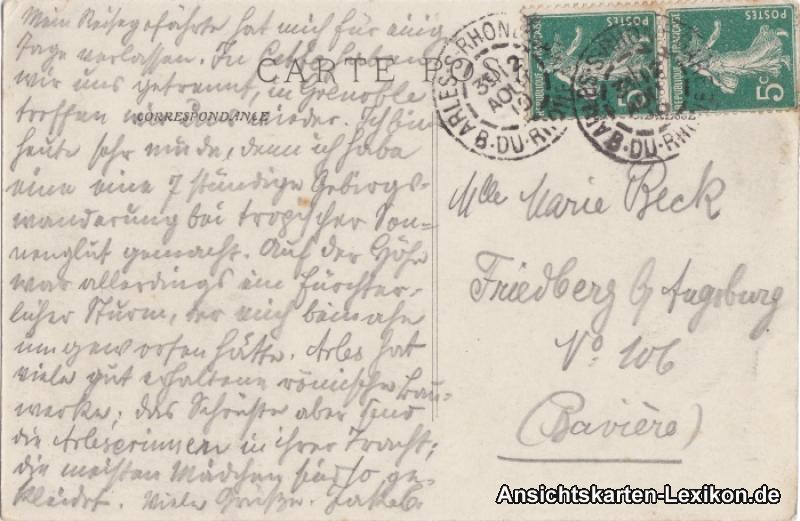 Mein Reisegefährte hat mich für einige
Tage verlassen. In Cette haben
wir uns getrennt, in Grenoble
treffen wir uns wieder. Ich bin
heute sehr müde, denn ich habe
eine 7 stündige Gebirgs-
wanderung bei tropischer Son-
nenglut gemacht. Auf der Höhe
war allerdings ein fürchter-
licher Sturm, der mich beinahe
umgeworfen hätte. Arles hat
viele gut erhaltene römische Bau-
werke; das Schönste aber sind
die Arleserinnen in ihrer Tracht;
die meisten Mädchen sind so ge-
kleidet. Viele Grüße. Jakob.
CARTE PO
CORRESPONDANCE
ARLES-S-RHONE
B-DU-RHONE
REPUBLIQUE FRANÇAISE
POSTES
5c
REPUBLIQUE FRANÇAISE
POSTES
5c
ARLES-S-RHONE
B-DU-RHONE
Mlle Marie Beck
Friedberg b/ Augsburg
No 106
(Bavière)
Ansichtskarten-Lexikon.de